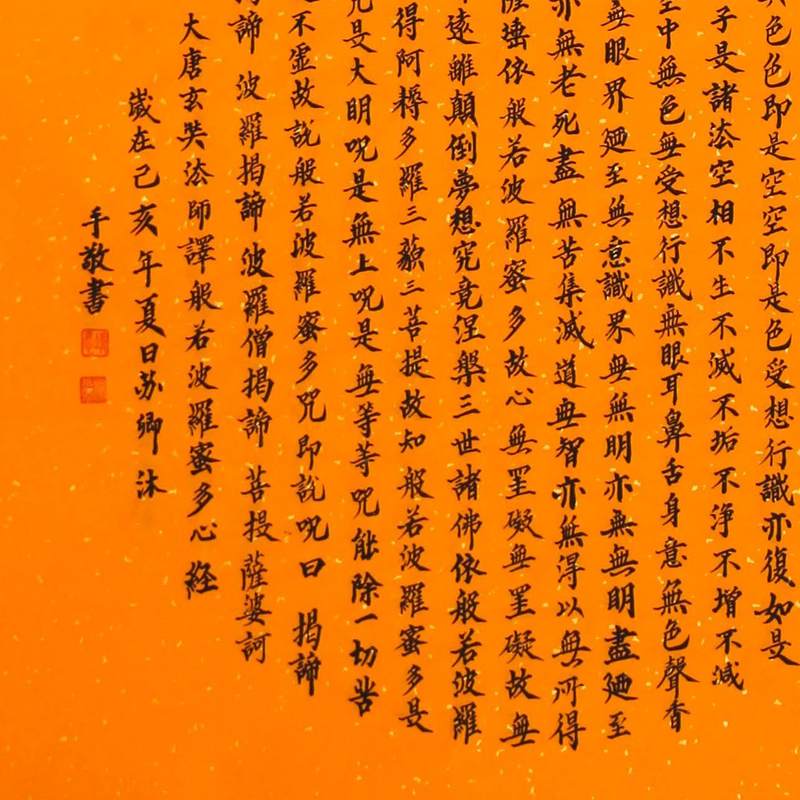 色色即是空空即是色受想行識亦復如是
子是諸法空相不生不滅不垢不淨不增不減
中無色無受想行識無眼耳鼻舌身意無色聲香
無眼界廼至無意識界無無明亦無無明盡廼至
亦無老死盡無苦集滅道無智亦無得以無所得
依般若波羅蜜多故心無罣礙無罣礙故無
遠離顛倒夢想究竟涅槃三世諸佛依般若波羅
得阿耨多羅三藐三菩提故知般若波羅蜜多是
是大明呪是無上呪是無等等呪能除一切苦
不虛故說般若波羅蜜多呪即說呪曰 揭諦
諦 波羅揭諦 波羅僧揭諦 菩提薩婆訶
大唐玄奘法師譯般若波羅蜜多心經
歲在己亥年夏日苏卿沐
手敬書